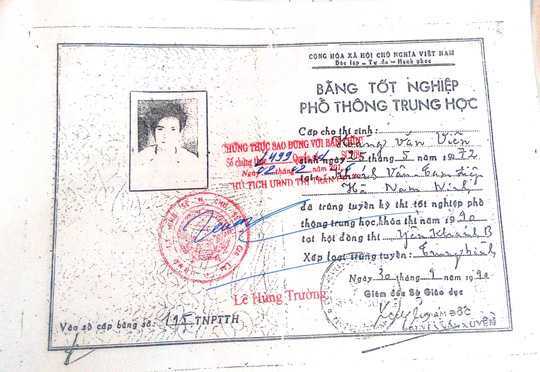 CỘNG HÒA XÃ HỘI CHỦ NGHĨA VIỆT NAM
Độc lập - Tự do - Hạnh phúc
BẰNG TỐT NGHIỆP
PHỔ THÔNG TRUNG HỌC
Cấp cho thí sinh:
Văn Viên
sinh ngày 25 tháng 5 năm 1972
tại Vân Tam Điệp
Hà Nam Ninh
đã trúng tuyển kỳ thi tốt nghiệp phổ
thông trung học, khóa thi năm 1990
tại hội đồng thi Yên Khánh B
Xếp loại trúng tuyển: Trung bình
Ngày 30 tháng 9 năm 1990
Giám đốc Sở Giáo dục
CHỨNG THỰC SAO ĐÚNG VỚI BẢN CHÍNH
Số chứng thực 499
Ngày 02
Lê Hùng Trường
Vào sổ cấp bằng số 195 TNPTTH